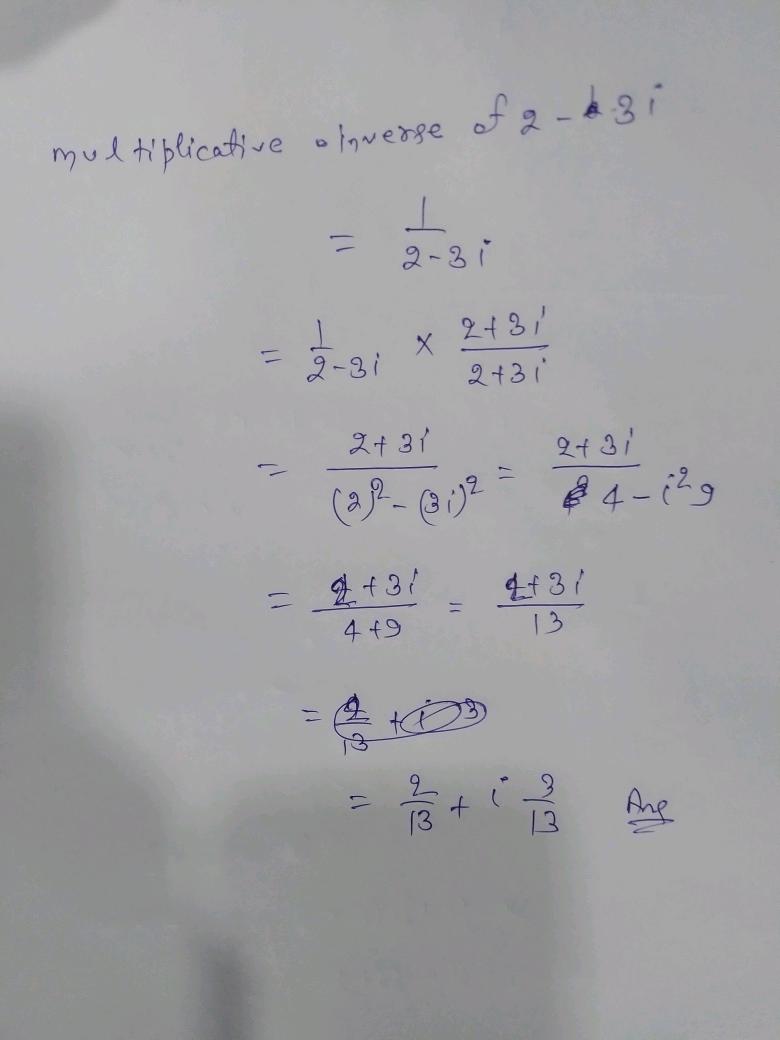 multiplicative inverse of 2 - 3i
= 1/(2-3i)
= 1/(2-3i) × (2+3i)/(2+3i)
= (2+3i)/((2)² - (3i)²) = (2+3i)/(4 - i²9)
= (2+3i)/(4+9) = (2+3i)/13
= 2/13 + i 3/13 Ans